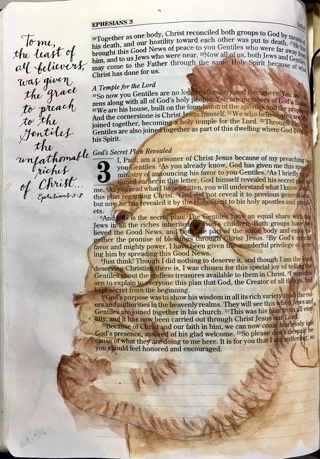 EPHESIANS 3
To me,
the least of
all believers,
was given
the grace
to preach
to the
Gentiles
the
unfathomable
riches
of Christ...
Ephesians 3:8
16Together as one body, Christ reconciled both groups to God by means of
his death, and our hostility toward each other was put to death.
brought this Good News of peace to you Gentiles who were far away from
him, and to us Jews who were near. 18Now all of us, both Jews and Gentiles,
may come to the Father through the same Holy Spirit because of what
Christ has done for us.
A Temple for the Lord
19So now you Gentiles are no longer
zens along with all of God's holy
are his house, built on the
And the cornerstone is Christ Jesus himself. 21We who believe are
joined together, becoming a holy temple for the Lord.
Gentiles are also joined together as part of this dwelling where God
his Spirit.
God's Secret Plan Revealed
3
I, Paul, am a prisoner of Christ Jesus because of my preaching
you Gentiles. 2As you already know, God has given me this
of announcing his favor to you Gentiles.
earlier in this letter, God himself revealed his secret
me. you will understand what I know
this plan regarding Christ. God did not reveal it to previous
but now he has revealed it by the Holy Spirit to his holy apostles and
ets.
6And this is the secret plan: The Gentiles have an equal share with the
Jews in all the riches inherited by God's children. Both groups have
lieved the Good News, and both are part of the same body and enjoy
the promise of blessings through Christ Jesus. 7By God's special
and mighty power, I have been given the wonderful privilege of
ing him by spreading this Good News.
8Just think! Though I did nothing to deserve it, and though I am the least
deserving Christian there is, I was chosen for this special joy of telling the
Gentiles about the endless treasures available to them in Christ. 9I was
sen to explain to everyone this plan that God, the Creator of all things, had
kept secret from the beginning.
10God's purpose was to show his wisdom in all its rich variety to all the
ers and authorities in the heavenly realms. They will see this when Jews and
Gentiles are joined together in his church. 11This was his plan from all eter-
nity, and it has now been carried out through Christ Jesus our Lord.
12Because of Christ and our faith in him, we can now come fearlessly into
God's presence, assured of his glad welcome. 13So please don't despair be-
cause of what they are doing to me here. It is for you that I am suffering, so
you should feel honored and encouraged.